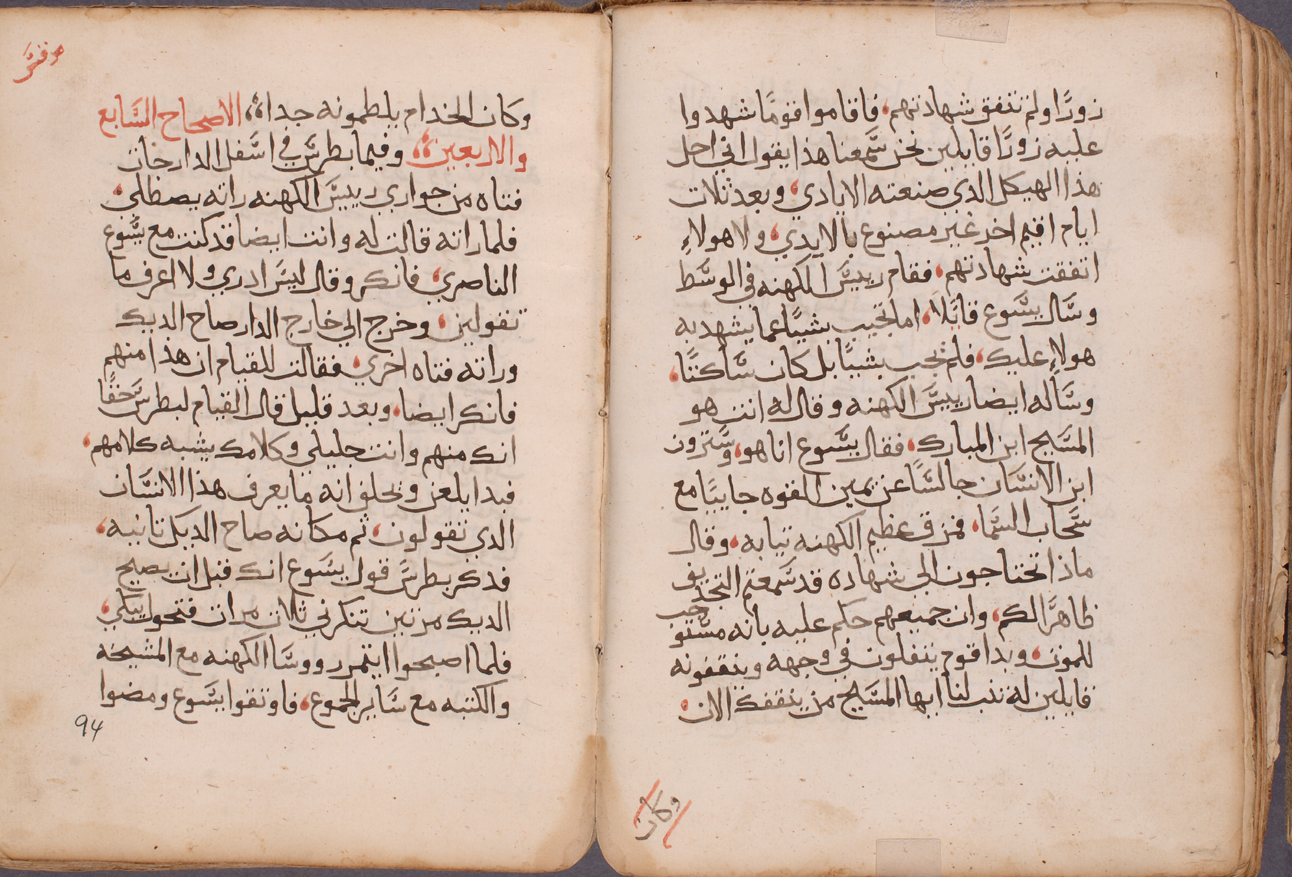 زورًا ولم تتفق شهادتهم، فاقاموا قومًا شهدوا
عليه زورًا قايلين نحن سمعنا هذا يقول اني احل
هذا الهيكل الدي صنعته الايادي، وبعد تلات
ايام اقيم اخر غير مصنوع بالايدي، ولا هولاءِ
اتفقت شهادتهم، فقام رييس الكهنه في الوسط
وسال يسوع قايلًا، اما تجيب بشيًا عما يشهد به
هولاءِ عليك، فلم يجب بشيًا بل كان ساكتًا،
وساله ايضا رييس الكهنه وقال له انت هو
المسيح ابن المبارك، فقال يسوع انا هو، وسترون
ابن الانسان جالسًا عن يمين القوه جاييًا مع
سحاب السما، فمزق عظيم الكهنه تيابه، وقال
ماذا تحتاجون الى شهاده قد سمعتم التجديف
ظاهرًا لكم، وان جميعهم حكم عليه بانه مستوجب
للموت، وبدا قوم يتفلون في وجهه وينقفونه
قايلين له تنبا لنا ايها المسيح من ينقفك الان،
وكان
وكان الخدام يلطمونه جداه، الاصحاح السابع
والاربعين، وفيما بطرس في اسفل الدار جات
فتاه من جواري رييس الكهنه راته يصطلي،
فلما راته قالت له وانت ايضا قد كنت مع يسوع
الناصري، فانكر وقال ليس ادري ولا اعرف ما
تقولين، وخرج الى خارج الدار صاح الديك
وراته فتاه اخري، فقالت للقيام ان هذا منهم
فانكر ايضا، وبعد قليل قال القيام لبطرس حقًا
انك منهم وانت جليلي وكلامك يشبه كلامهم،
فبدا يلعن ويحلف انه ما يعرف هذا الانسان
الدي تقولون، تم مكانه صاح الديك تانيه،
فدكر بطرس قول يسوع انك قبل ان يصيح
الديك مرتين تنكرني تلات مرات فتحول يبكي،
فلما اصبحوا ايتمر رووسا الكهنه مع المشيخه
والكتبه مع ساير الجموع، فاوتقوا يسوع ومضوا
94